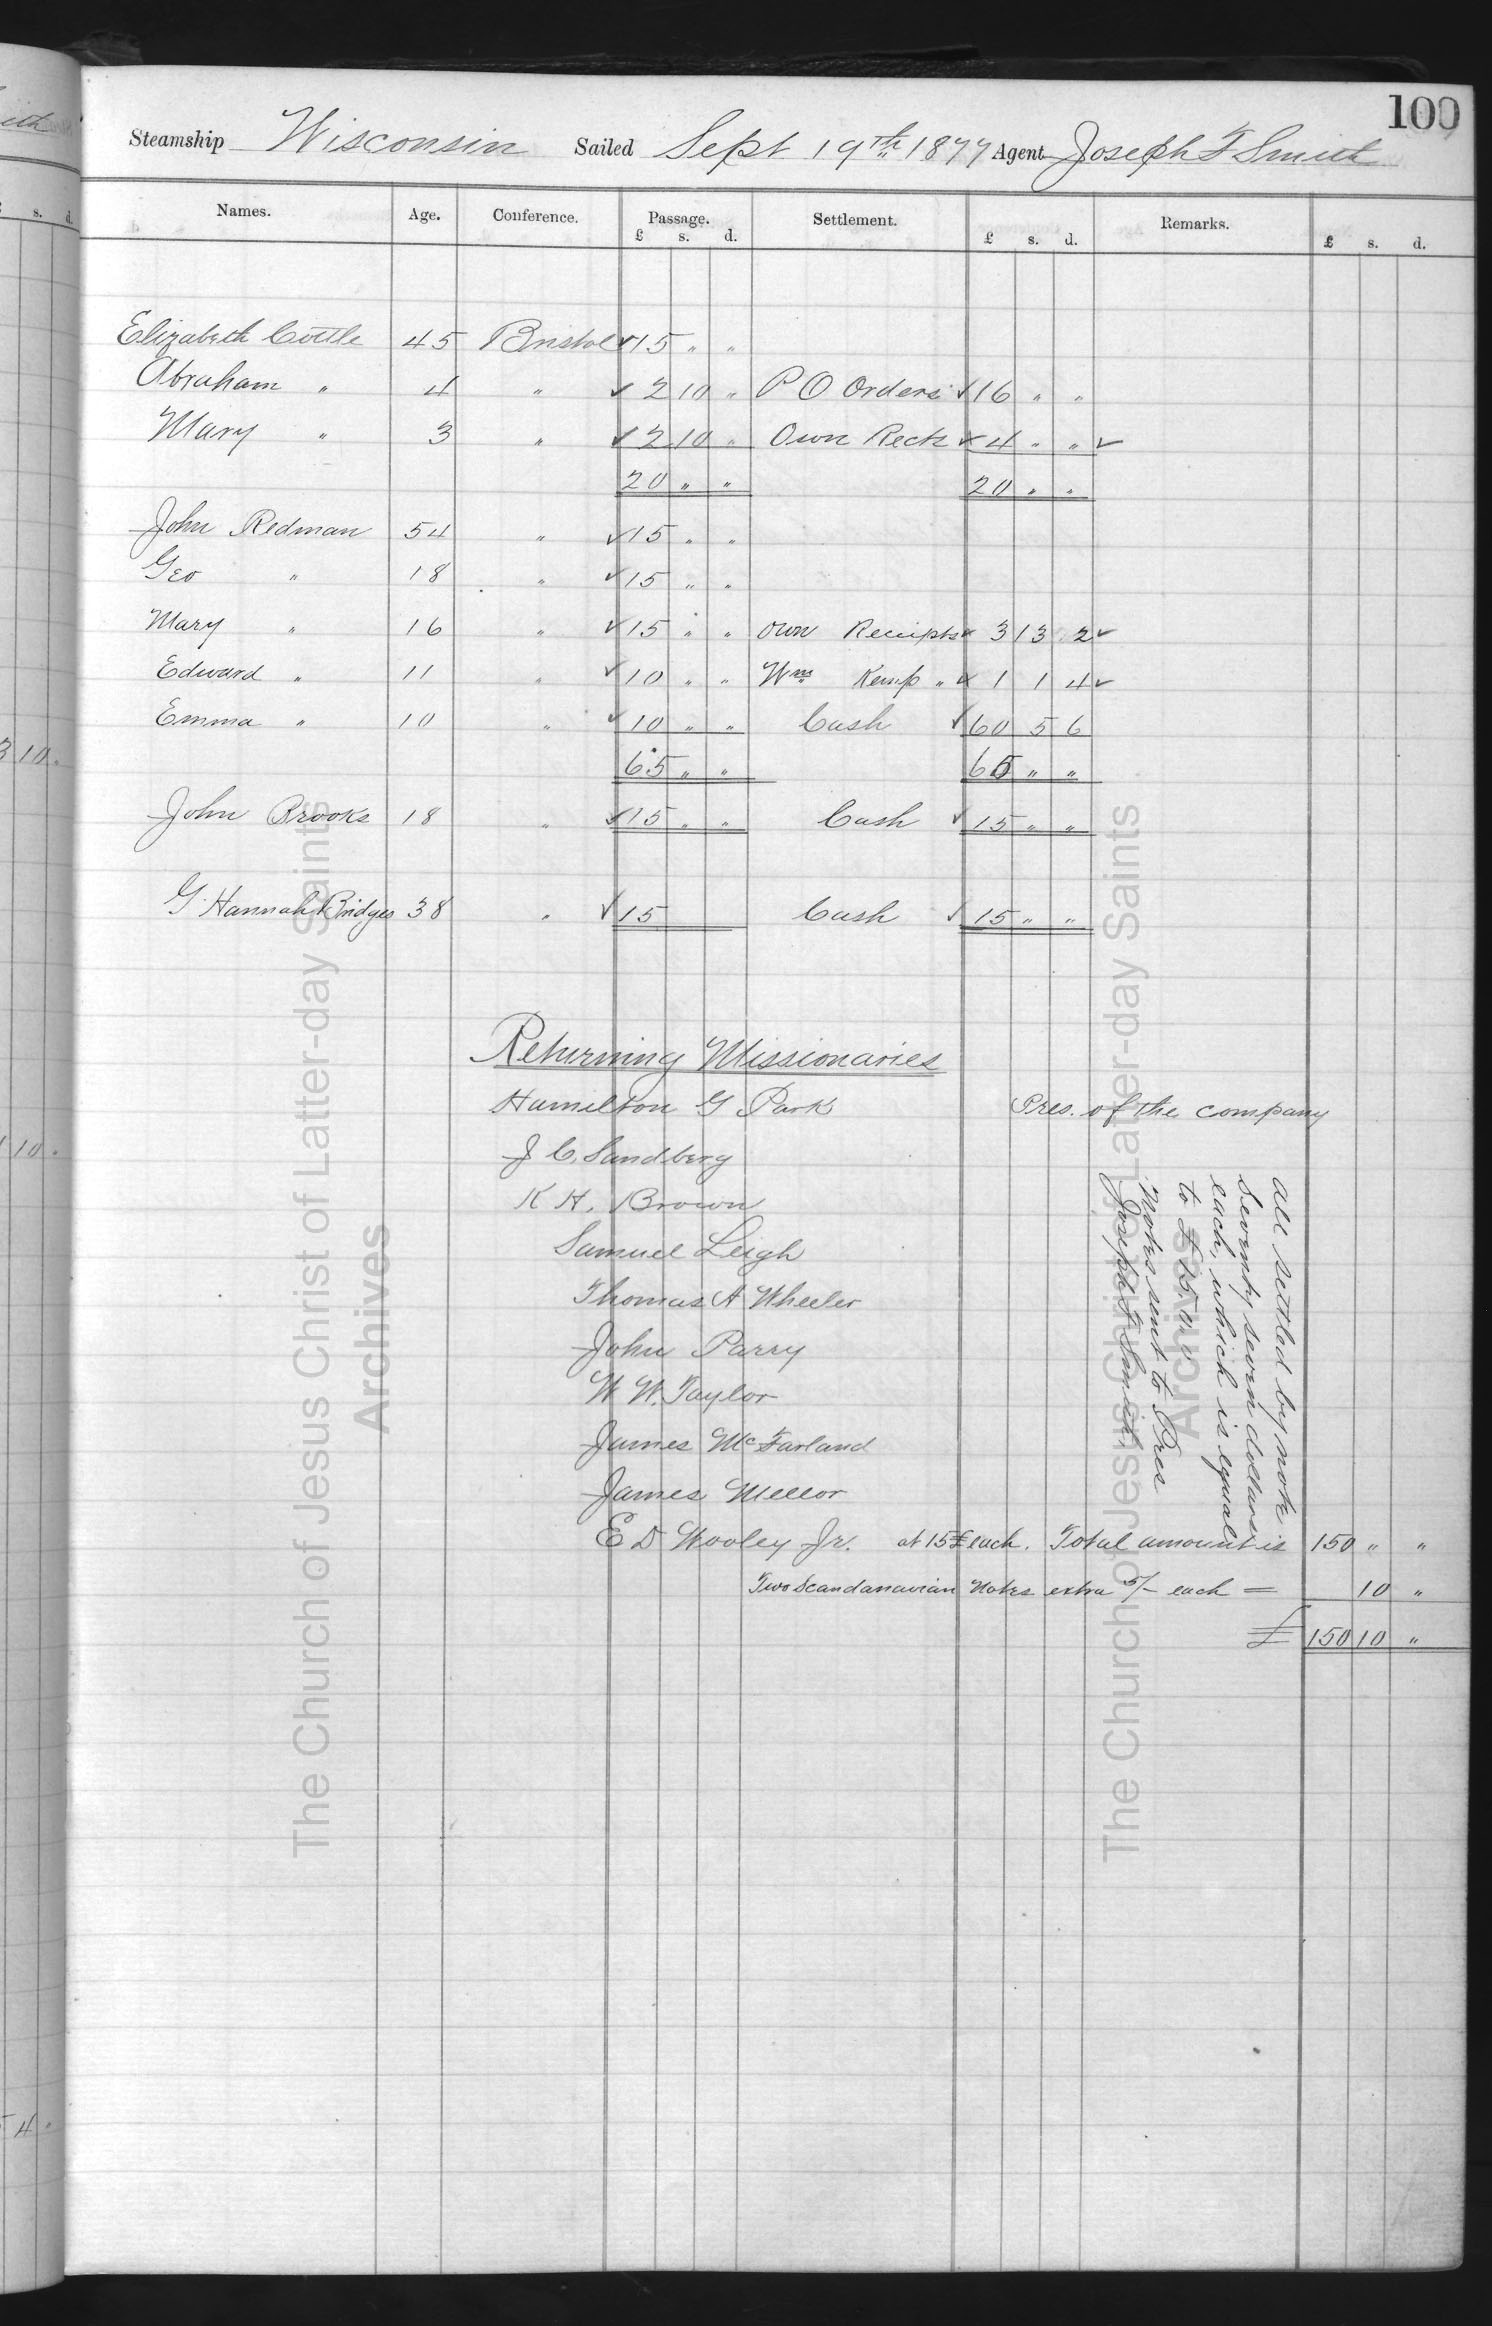 100
Steamship Wisconsin Sailed Sept 19th 1877 Agent Joseph F Smith
Names. Age. Conference. Passage. Settlement. Remarks.
£ s. d. £ s. d. £ s. d.
Elizabeth Cottle 45 Bristol ✓ 15 " "
Abraham " 4 " ✓ 2 10 " P O Orders ✓ 16 " "
Mary " 3 " ✓ 2 10 " Own Rects ✓ 4 " " ✓
20 " " 20 " "
John Redman 54 " ✓ 15 " "
Geo " 18 " ✓ 15 " "
Mary " 16 " ✓ 15 " " Own Receipts ✓ 3 13 2 ✓
Edward " 11 " ✓ 10 " " Wm Kemp " ✓ 1 1 4 ✓
Emma " 10 " ✓ 10 " " Cash ✓ 60 5 6
65 " " 65 " "
John Brooks 18 " ✓ 15 " " Cash ✓ 15 " "
G Hannah Bridges 38 " ✓ 15 Cash ✓ 15 " "
Returning Missionaries
Hamilton G Park Pres. of the company
J C. Sandberg
K H. Brown
Samuel Leigh
Thomas A Wheeler
John Parry
W W. Taylor
James McFarland
James Mellor
E D Wooley Jr. at 15£ each. Total amount is 150 " "
Two Scandanavian Notes extra 5/- each = 10 "
£ 150 10 "
All settled by note
Seventy seven dollars
each, which is equal
to £ 15 " "
Notes sent to Pres
Joseph F Smith
The Church of Jesus Christ of Latter-day Saints
Archives
The Church of Jesus Christ of Latter-day Saints
Archives
s. d.
3 10 "
10 "
4 "